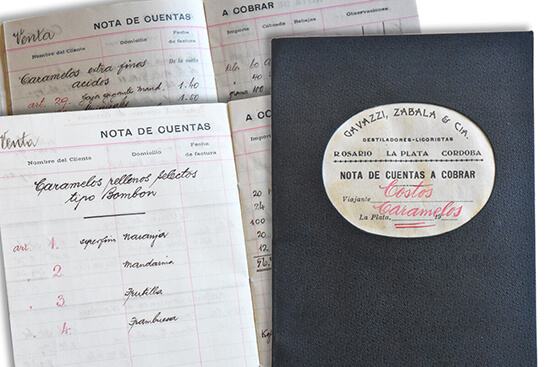 Venta
NOTA DE CUENTAS A COBRAR
Nombre del Cliente Domicilio Fecha de factura Importe Cóbrada Rebajas Observaciones
Caramelos extra finos
ácidos
art. 29 1.40
Venta
NOTA DE CUENTAS A
Nombre del Cliente Domicilio Fecha de factura
Caramelos rellenos selectos
tipo Bombon
art. 1. superfin Naranja
2 Mandarina
3 Frutilla
4. Frambuesa
20
12
GAVAZZI, ZABALA & CIA.
DESTILADORES-LICORISTAS
ROSARIO LA PLATA CORDOBA
NOTA DE CUENTAS A COBRAR
Costos
Viajante Caramelos
La Plata,